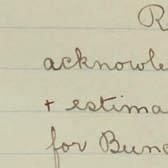 R
acknowle
+ estima
for Bun